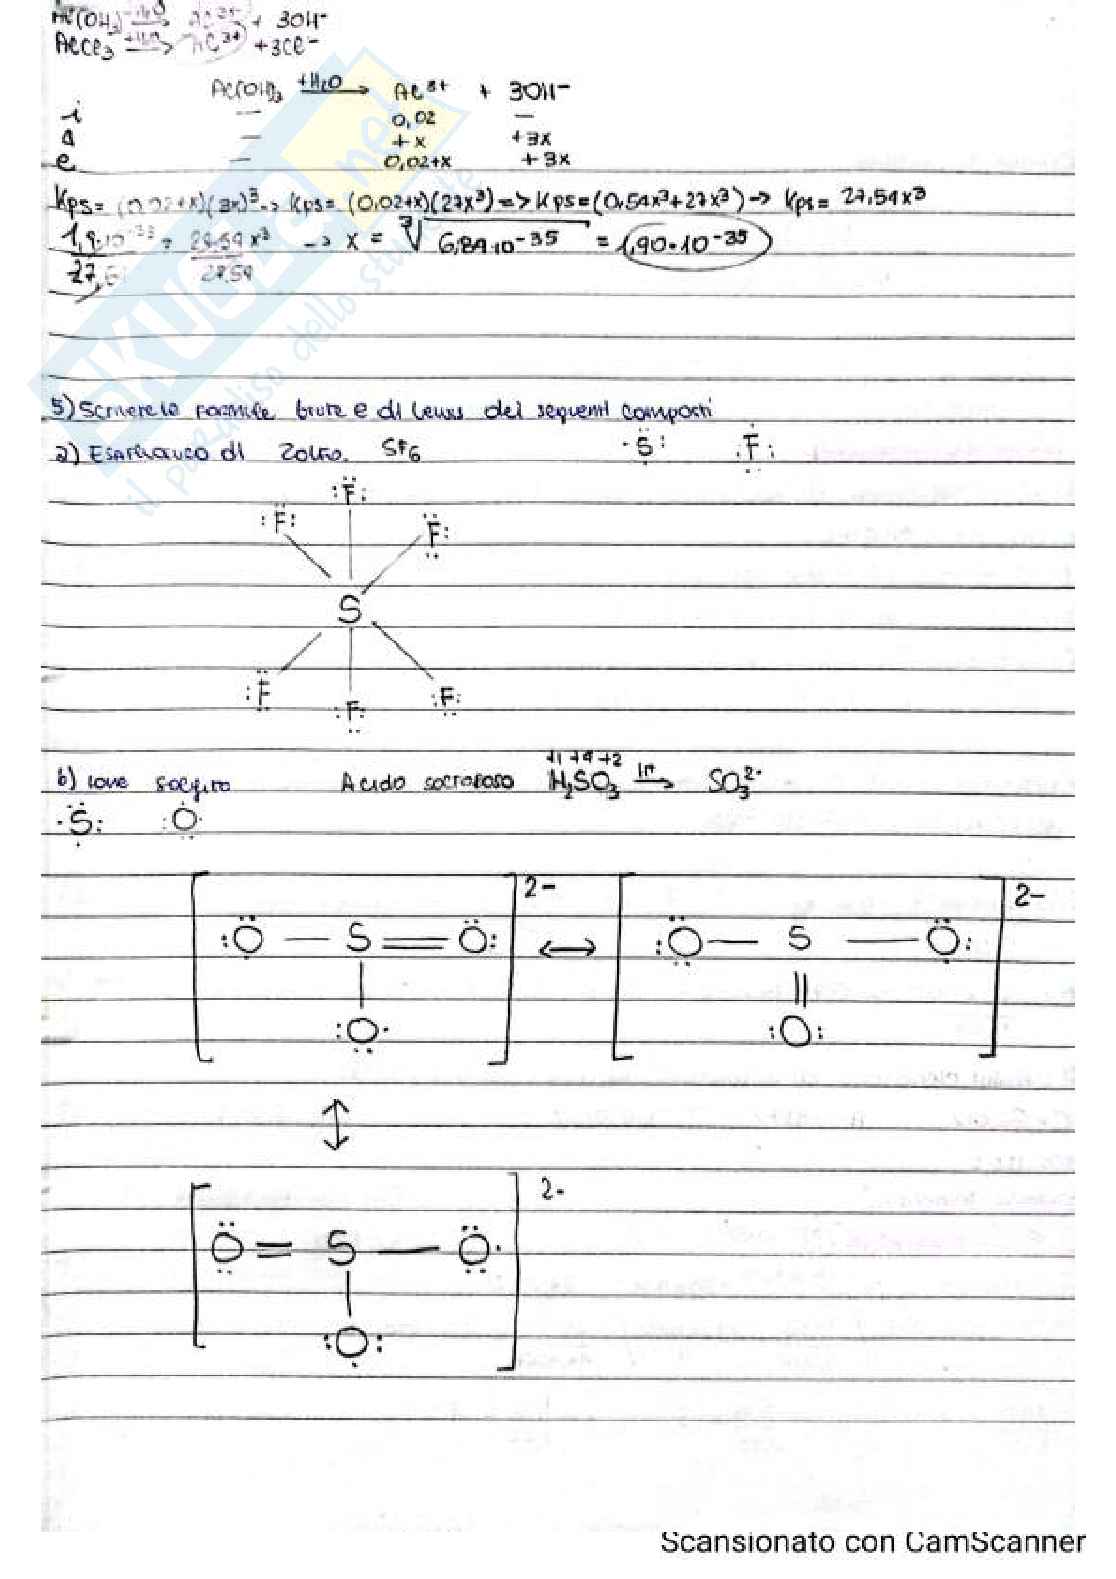 Al(OH)3 +H2O → Al3+ + 3OH-
AlCl3 +H2O → Al3+ + 3Cl-
Al(OH)3 +H2O → Al3+ + 3OH-
i — 0,02 —
Δ — +x +3x
e — 0,02+x +3x
Kps = (0,02+x)(3x)3 → Kps = (0,02+x)(27x3) => Kps = (0,54x3+27x3) → Kps = 27,54x3
1,9·10-33 = 27,54 x3 → x = 3√6,89·10-35 = 1,90·10-35
27,54 27,54
5) Scrivere le formule brute e di Lewis dei seguenti composti
a) Esafluoruro di Zolfo. SF6 S F
F
F F
S
F F
F
b) Ione solfito Acido solforoso +1 +4 -2 H2SO3 → SO3 2-
S O
[O — S = O 2- ↔ [O — S — O] 2-
O O
↕
[O = S — O] 2-
O
skuola.net
il paradiso dello studente
Scansionato con CamScanner